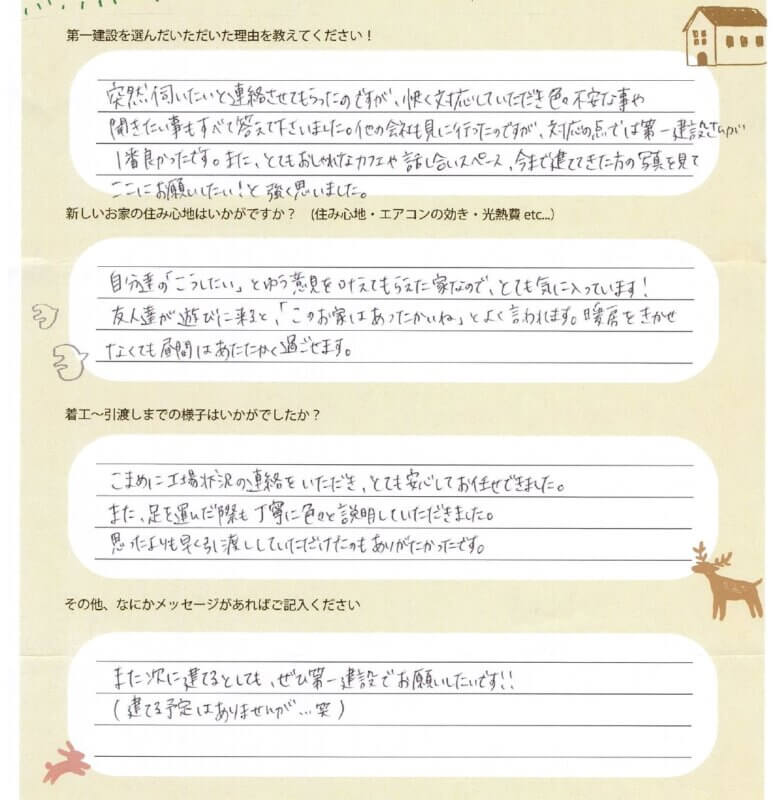 第一建設を選んだいただいた理由を教えてください！
突然伺いたいと連絡させてもらったのですが、快く対応していただき色々不安な事や
聞きたい事もすべて答えて下さいました。他の会社も見に行ったのですが、対応の点では第一建設さんが
1番良かったです。また、とてもおしゃれなカフェや話し合いスペース、今まで建ててきた方の写真を見て
ここにお願いしたい！と強く思いました。
新しいお家の住み心地はいかがですか？ (住み心地・エアコンの効き・光熱費 etc...)
自分達の「こうしたい」とゆう意見を叶えてもらえた家なので、とても気に入っています！
友人達が遊びに来ると、「このお家はあったかいね」とよく言われます。暖房をきかせ
なくても昼間はあたたかく過ごせます。
着工～引渡しまでの様子はいかがでしたか？
こまめに工場状況の連絡をいただき、とても安心してお任せできました。
また、足を運んだ際も丁寧に色々と説明していただきました。
思ったよりも早く引に渡ししていただけたのもありがたかったです。
その他、なにかメッセージがあればご記入ください
また次に建てるとしても、ぜひ第一建設でお願いしたいです!!
(建てる予定はありませんが…笑)